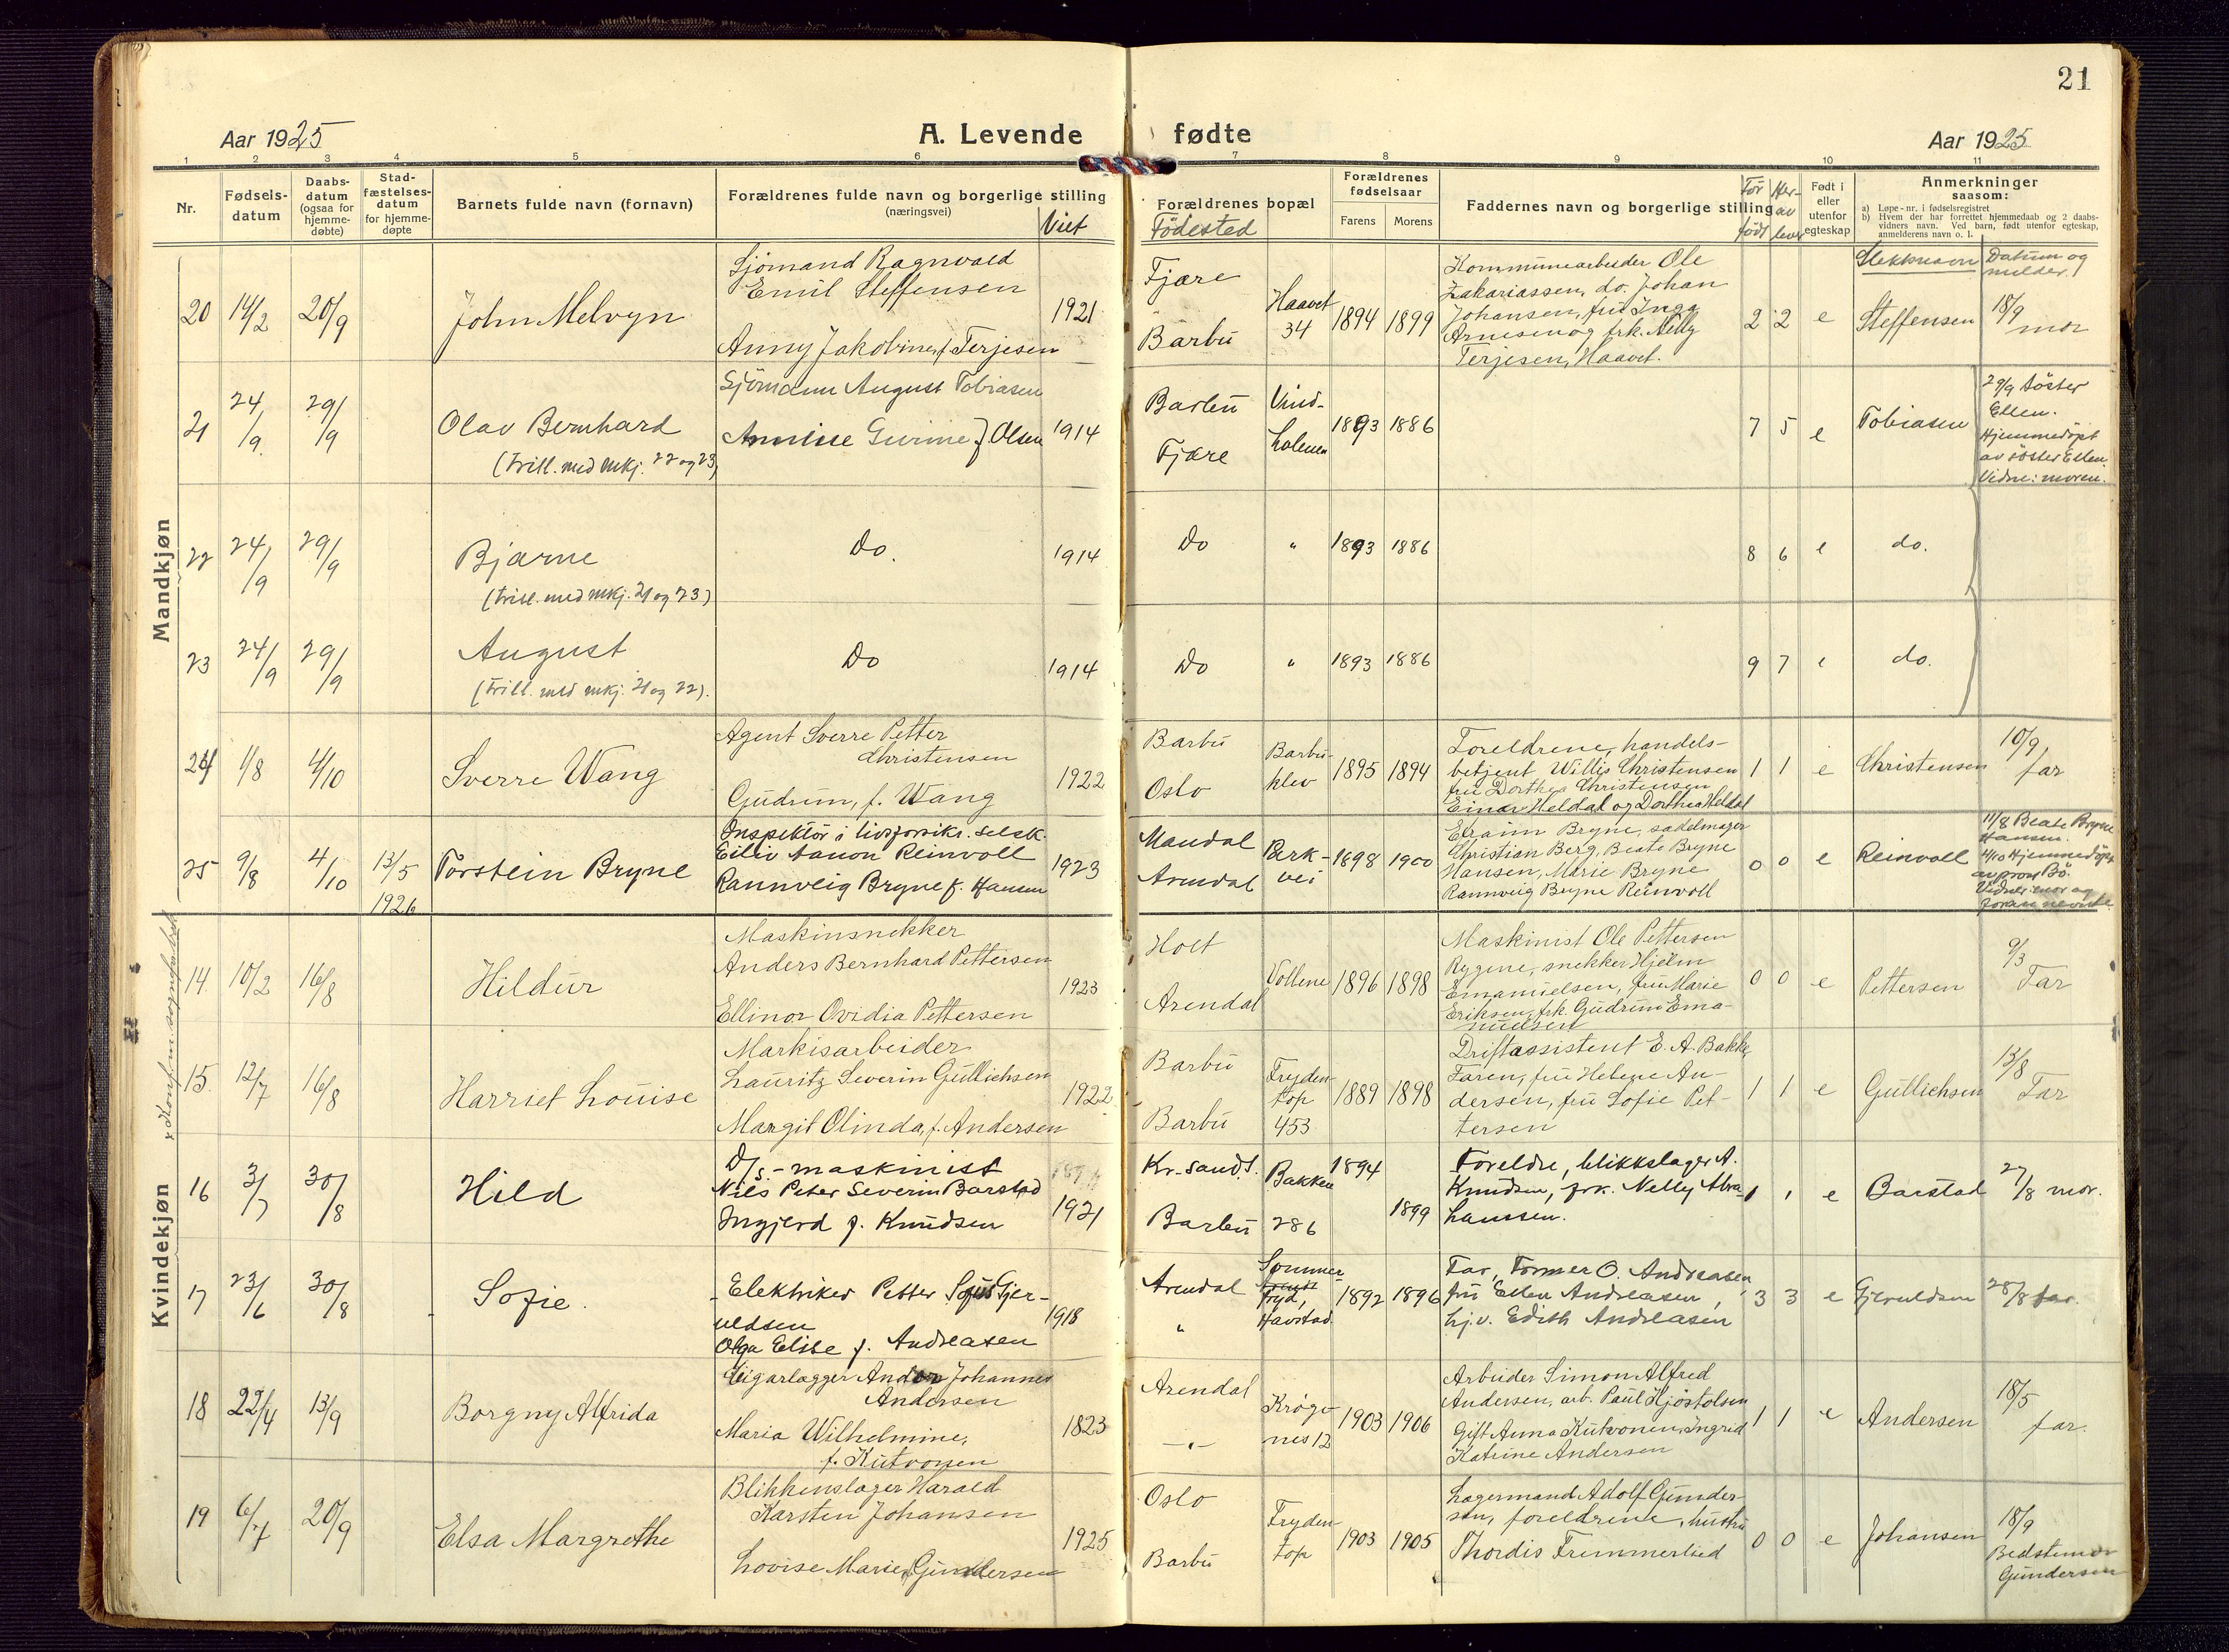 21
Aar 1925
A. Levende
fødte
Aar 1925
1 2 3 4 5 6 7 8 9 10 11
Nr.
Fødsels-
datum
Daabs-
datum
(ogsaa for
hjemme-
døbte)
Stad-
fæstelses-
datum
for hjemme-
døpte
Barnets fulde navn (fornavn)
Forældrenes fulde navn og borgerlige stilling
(næringsvei)
Viet
Forældrenes bopæl
Födested
Forældrenes
fødselsaar
Farens Morens
Faddernes navn og borgerlige stilling
För
födt
Her-
av
lever
Født i
eller
utenfor
egteskap
Anmerkninger
saasom:
a) Løpe-nr. i fødselsregistret
b) Hvem der har forrettet hjemmedaab og 2 daabs-
vidners navn. Ved barn, født utenfor egteskap,
anmelderens navn o. l.
Slektsnavn
Datum og
melder
Mandkjøn
20 14/2 20/9
John Melvyn
Sjömand Ragnvald
Emil Steffensen
Anny Jakobine, f. Terjesen
1921
Fjære
Barbu
Haavet
34
1894 1899
Kommunearbeider Ole
Zakariassen, do. Johan
Johansen, fru Inga
Arnesen og frk. Nelly
Terjesen, Haavet.
2 2 e
Steffensen
18/9
mor
21 24/9 29/9
Olav Bernhard
(trill. med mkj. 22 og 23)
Sjömann August Tobiasen
Gurine f. Olsen
1914
Barbu
Fjære
Vind-
holmen
1893 1886
7 5 e
Tobiasen
29/9 söster
Ellen.
Hjemmedöpt
av söster Ellen.
Vidne: moren.
22 24/9 29/9
Bjarne
(trill. med mkj. 21 og 23)
Do.
1914
Do " 1893 1886
8 6 e
do.
23 24/9 29/9
August
(trill. med mkj. 21 og 22).
Do
1914
Do " 1893 1886
9 7 e
do.
24 1/8 4/10
Sverre Wang
Agent Sverre Petter
Christensen
Gudrun, f. Wang
1922
Barbu
Oslo
Barbu-
klev
1895 1894
Foreldrene, handels-
betjent Willis Christensen
fru Dorthea Christensen
Einar Heldal og Dorthea Heldal
1 1 e
Christensen
10/9
far
25 9/8 4/10 13/5
1926
Torstein Bryne
Inspektör i livsforsikr. selsk.
Eiliv Aanon Reinvoll
Rannveig Bryne f. Hansen
1923
Mandal
Arendal
Perk-
vei
1898 1900
Efraim Bryne, sadelmager
Christian Berg, Beate Bryne
Hansen, Marie Bryne
Rannveig Bryne Reinvoll
0 0 e
Reinvoll
11/8 Beate Bryne
Hansen.
4/10 Hjemmedöpt
av prost Bö.
Vidner: mor og
forannevnte
Kvindekjøn
14 10/2 16/8
Hildur
Maskinsnekker
Anders Bernhard Pettersen
Ellinor Ovidia Pettersen
1923
Holt
Arendal
Vollene
1896 1898
Maskinist Ole Pettersen
Rygene, snekker Hjelm
Emanuelsen, fru Marie
Eriksen, frk. Gudrun Ema-
nuelsen
0 0 e
Pettersen
9/3
Far
15 12/7 16/8
Harriet Louise
Markisarbeider
Lauritz Severin Gullichsen
Margit Olinda, f. Andersen
1922
Barbu
Barbu
Fryden-
top
453
1889 1898
Driftassistent E. A. Bakke
Faren, fru Helene An-
dersen, fru Sofie Pet-
tersen
1 1 e
Gullichsen
13/8
Far
16 3/7 30/8
Hild
D/s.-maskinist
Nils Peter Severin Barstad
Ingjerd f. Knudsen
1921
Kr-sand S.
Barbu
Bakken
286
1894
1899
Foreldre, blikkslager A.
Knudsen, frk. Nelly Abra-
hamsen.
1 1 e
Barstad
27/8 mor.
17 23/6 30/8
Sofie.
Elektriker Petter Gjer-
uldsen
Olga Elise f. Andreasen
1918
Arendal
"
Sommer-
fryd,
Havstad
1892 1896
Far, Former O. Andreasen
fru Ellen Andreasen,
hj.v. Edith Andreasen
3 3 e
Gjeruldsen
28/8 far.
18 22/4 13/9
Borgny Alfrida
Cigarlagger Andor Johannes
Andersen
Maria Wilhelmine,
f. Kutvonen
1823
Arendal
-"-
Kröge-
nes 12
1903 1906
Arbeider Simon Alfred
Andersen, arb. Paul Kjöstolsen
Gift Anna Kutvonen, Ingrid
Katrine Andersen
1 1 e
Andersen
18/5
far.
19 6/7 20/9
Elsa Margrethe
Blikkenslager Harald
Karsten Johansen
Lovise Marie, f. Gundersen
1925
Oslo
Barbu
Fryden-
top
1903 1905
Lagermand Adolf Gunder-
sen, foreldrene, hustru
Thordis Frimmerlied
0 0 e
Johansen
18/9
Bedstemor
Gundersen